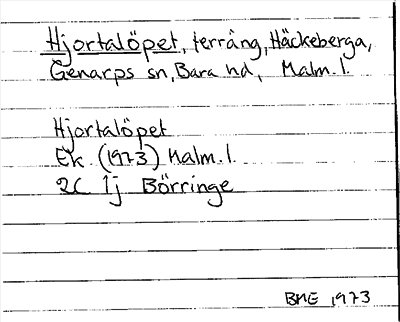 Hjortalöpet, terräng, Häckeberga,
Genarps sn, Bara hd, Malm. l.
Hjortalöpet
Ek. (1973) Malm. l.
2C 1j Börringe
BME 1973